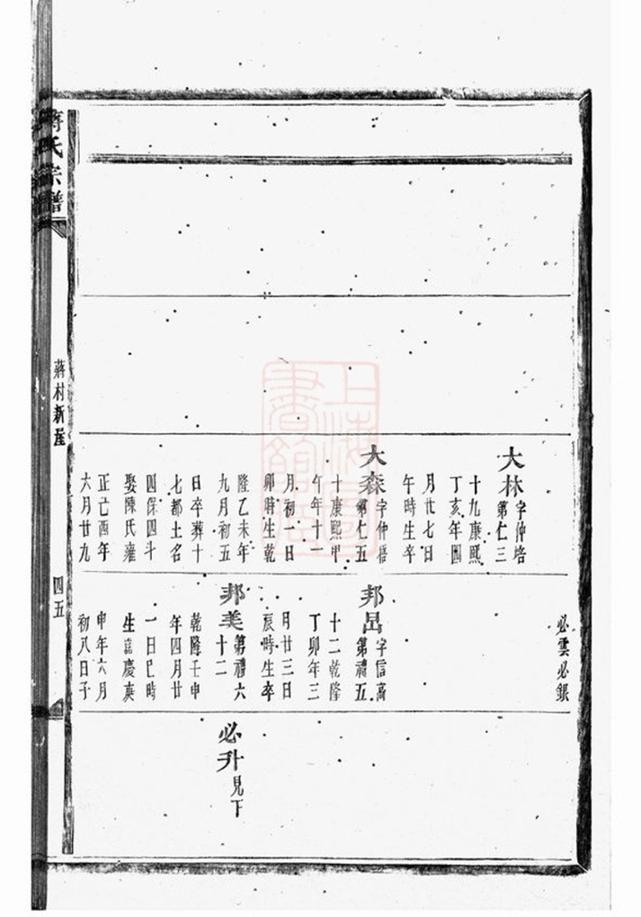 大林字仲培
第仁三
十九康熙
丁亥年
月廿七日
午時生卒
大森字仲梧
第仁五
十康熙甲
午年十一
月初一日
卯時生乾
隆乙未年
九月初五
日卒葬十
七都土名
四保四斗
娶陳氏雍
正己酉年
六月廿九
必雲必銀
邦昌字信高
第禮五
十二乾隆
丁卯年三
月廿三日
辰時生卒
邦美第禮六
十二
乾隆壬申
年四月廿
一日巳時
生嘉慶庚
申年六月
初八日子
必升見下
蔣氏宗譜
蔣村新
四五